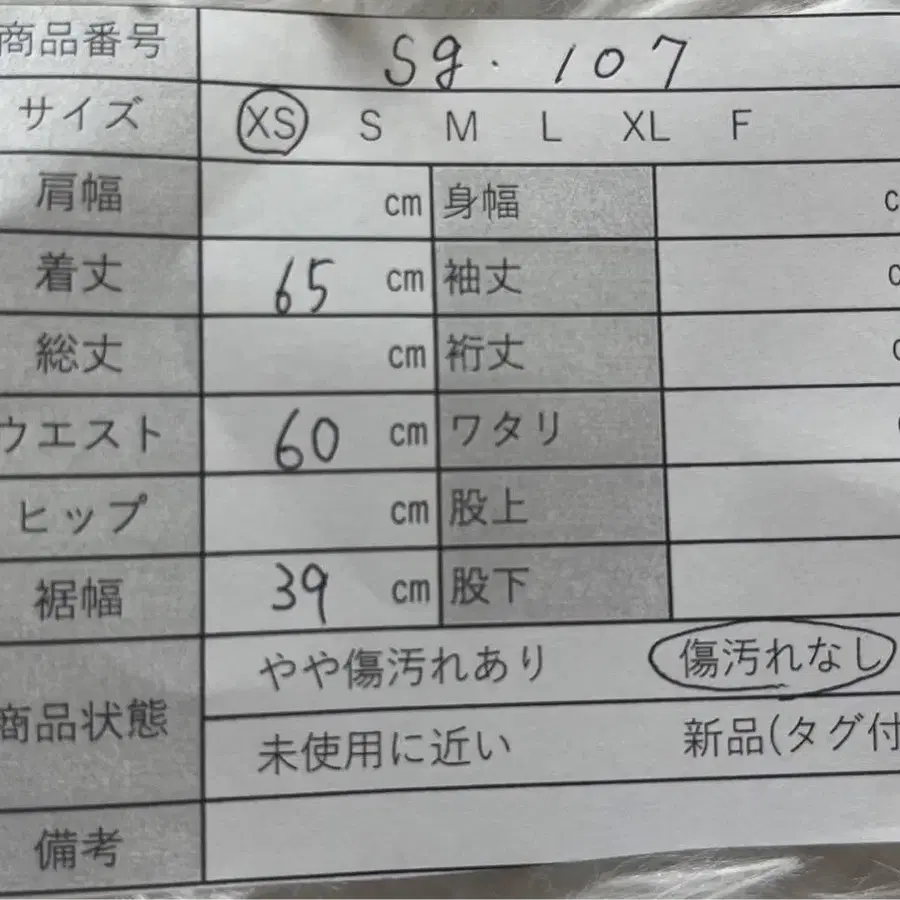 商品番号 Sg. 107
サイズ XS S M L XL F
肩幅 cm 身幅 c
着丈 65 cm 袖丈 c
総丈 cm 裄丈
ウエスト 60 cm ワタリ
ヒップ cm 股上
裾幅 39 cm 股下
やや傷汚れあり 傷汚れなし
商品状態
未使用に近い 新品(タグ付
備考